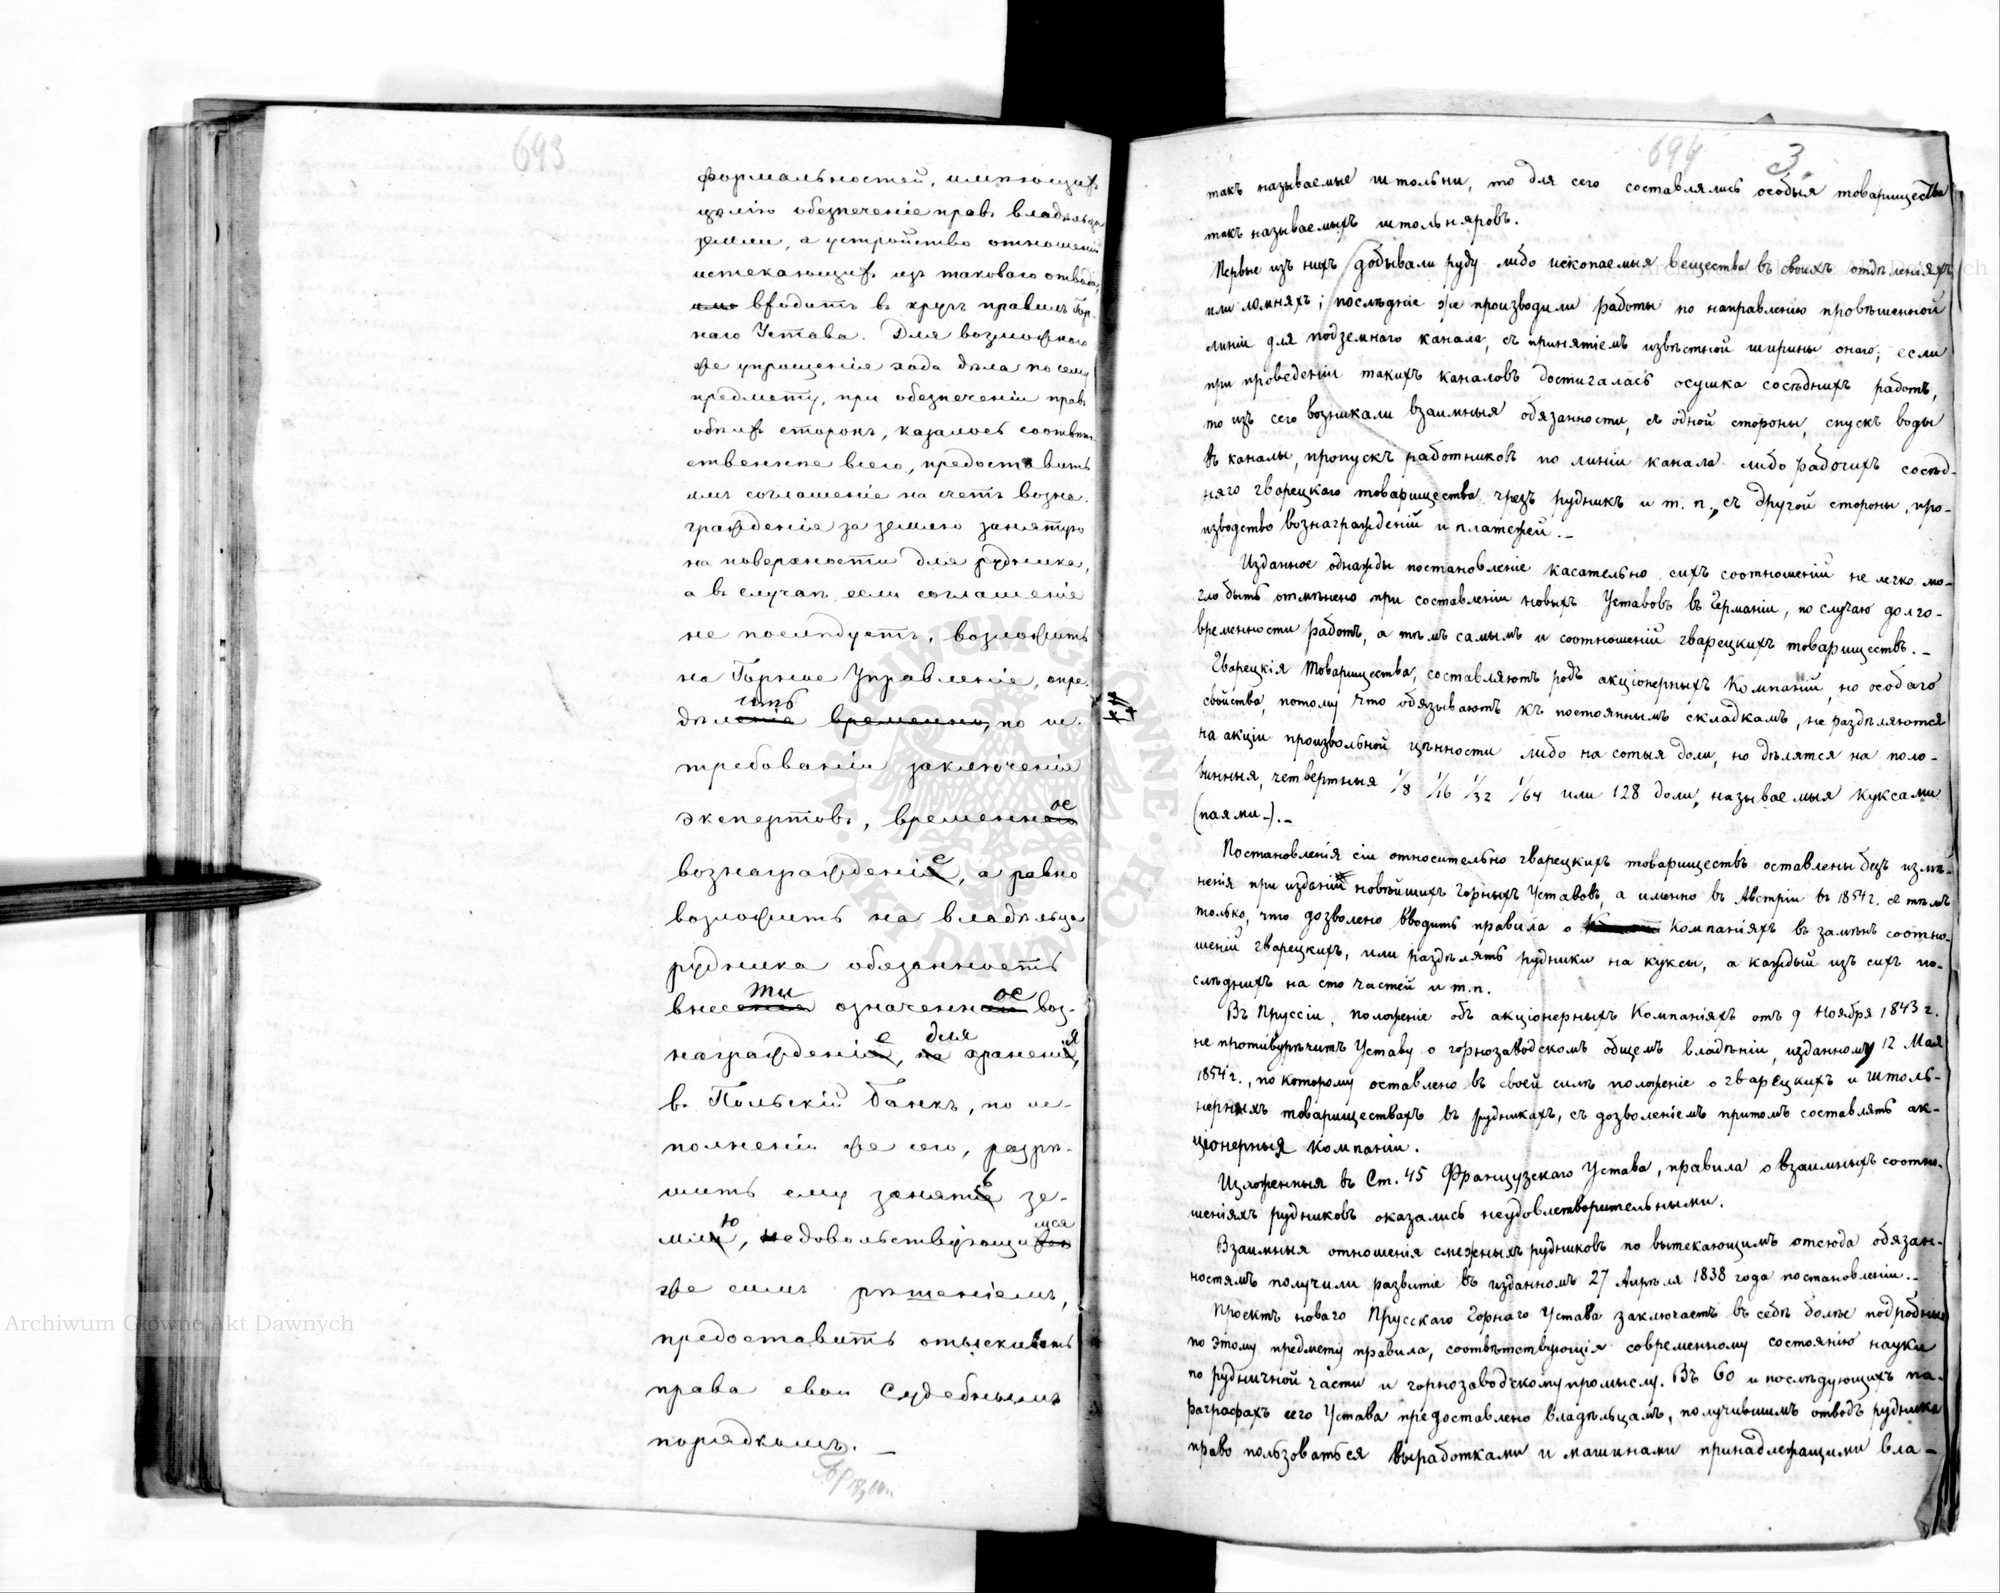 693
формальностей, имѣющихъ
цѣлію обезпеченіе правъ владѣльца
земли, а устройство отношеній
истекающихъ изъ таковаго отвода,
входитъ въ кругъ правилъ Гор-
наго Устава. Для возможнаго
же упрощенія хода дѣла по сему
предмету, при обезпеченіи правъ
обѣихъ сторонъ, казалось соотвѣт-
ственнѣе всего, предоставить
имъ соглашеніе на счетъ возна-
гражденія за землю занятую
на поверхности для рудника,
а въ случаѣ если соглашеніе
не послѣдуетъ, возложить
на Горное Управленіе, опре-
дѣлить временно, по ис-
требованіи заключенія
экспертовъ, временное
вознагражденіе, а равно
возложить на владѣльца
рудника обязанность
внести означенное воз-
награжденіе, для храненія,
въ Польскій Банкъ, по ис-
полненіи же сего, разрѣ-
шить ему занять зе-
млю, недовольствующимся
же симъ рѣшеніемъ,
предоставить отыскивать
права свои Судебнымъ
порядкомъ. —
694 3.
такъ называемые штольни, то для сего составлялись особыя товарищества
такъ называемыхъ штольняровъ.
Первые изъ нихъ добывали руду либо ископаемыя вещества въ своихъ отдѣленіяхъ
или ломняхъ; послѣдніе же производили работы по направленію провѣшенной
линіи для подземнаго канала, съ принятіемъ извѣстной ширины онаго; если
при проведеніи такихъ каналовъ достигалась осушка сосѣднихъ работъ,
то изъ сего возникали взаимныя обязанности, съ одной стороны, спускъ воды
въ каналы, пропускъ работниковъ по линіи канала либо рабочихъ сосѣд-
няго гварецкаго товарищества чрезъ рудникъ и т. п., съ другой стороны, про-
изводство вознагражденій и платежей. —
Изданное однажды постановленіе касательно сихъ соотношеній не легко мо-
гло быть отмѣнено при составленіи новыхъ Уставовъ въ Германіи, по случаю долго-
временности работъ, а тѣмъ самымъ и соотношеній гварецкихъ товариществъ. —
Гварецкія Товарищества, составляютъ родъ акціонерныхъ Компаній, но особаго
свойства, потому что обязываютъ къ постояннымъ складкамъ, не раздѣляются
на акціи произвольной цѣнности либо на сотыя доли, но дѣлятся на поло-
винныя, четвертныя 1/8 1/16 1/32 1/64 или 128 доли, называемыя куксами
(паями). —
Постановленія сіи относительно гварецкихъ товариществъ оставлены безъ измѣ-
ненія при изданіи новѣйшихъ Горныхъ Уставовъ, а именно въ Австріи въ 1854 г. съ тѣмъ
только, что дозволено вводить правила о Компаніяхъ въ замѣнъ соотно-
шеній гварецкихъ, или раздѣлять рудники на куксы, а каждый изъ сихъ по-
слѣднихъ на сто частей и т.п.
Въ Пруссіи, положеніе объ акціонерныхъ Компаніяхъ отъ 9 Ноября 1843 г.
не противурѣчитъ Уставу о горнозаводскомъ общемъ владѣніи, изданному 12 Мая
1854 г., по которому оставлено въ своей силѣ положеніе о гварецкихъ и штоль-
нерныхъ товариществахъ въ рудникахъ, съ дозволеніемъ притомъ составлять ак-
ціонерныя Компаніи.
Изложенныя въ Ст. 45 Французскаго Устава, правила о взаимныхъ соотно-
шеніяхъ рудниковъ оказались неудовлетворительными.
Взаимныя отношенія смежныхъ рудниковъ по вытекающимъ отсюда обязан-
ностямъ получили развитіе въ изданномъ 27 Апрѣля 1838 года постановленіи. —
Проектъ новаго Прусскаго Горнаго Устава заключаетъ въ себѣ болѣе подробныя
по этому предмету правила, соотвѣтствующія современному состоянію науки
по рудничной части и горнозаводскому промыслу. Въ 60 и послѣдующихъ па-
раграфахъ сего Устава предоставлено владѣльцамъ, получившимъ отводъ рудника
право пользоваться выработками и машинами принадлежащими вла-
Archiwum Główne Akt Dawnych